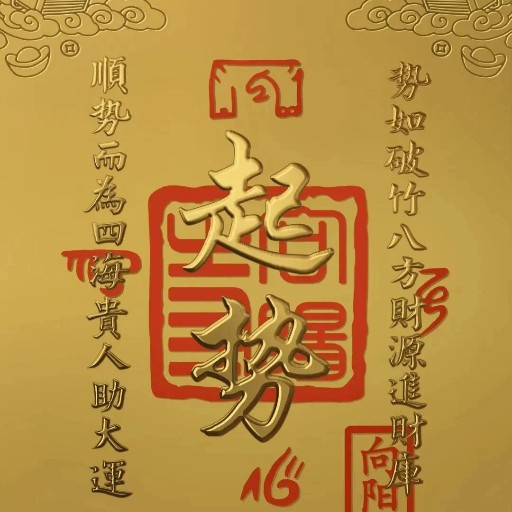 勢如破竹八方財源進財庫
起勢
順勢而為四海貴人助大運
向陽